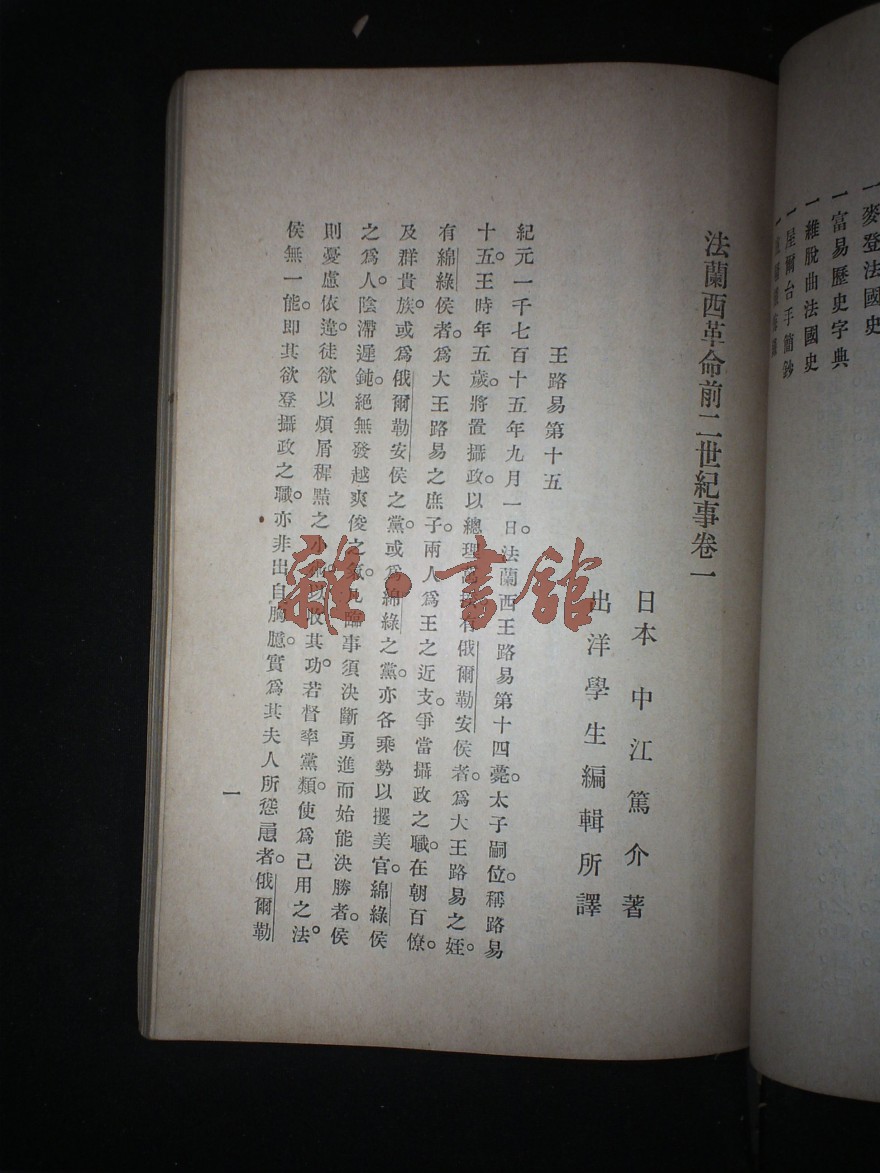 一麥登法國史
一富易歷史字典
一維脫曲法國史
一屋爾台手簡鈔
法蘭西革命前二世紀事卷一
日本 中江篤介著
出洋學生編輯所譯
王路易第十五
紀元一千七百十五年九月一日。法蘭西王路易第十四薨。太子嗣位。稱路易
十五。王時年五歲。將置攝政。以總理 有俄爾勒安侯者。爲大王路易之姪。
有綿綠侯者。爲大王路易之庶子。兩人爲王之近支。爭當攝政之職。在朝百僚。
及群貴族。或爲俄爾勒安侯之黨。或爲綿綠之黨。亦各乘勢以攫美官。綿綠侯
之爲人。陰滯遲鈍。絕無發越爽俊之 凡臨事須決斷勇進而始能決勝者。侯
則憂慮依違。徒欲以煩屑穉黠之小 以收其功。若督率黨類。使爲己用之法。
侯無一能。即其欲登攝政之職。亦非出自胸臆。實爲其夫人所慫慂者。俄爾勒
一
雜·書館